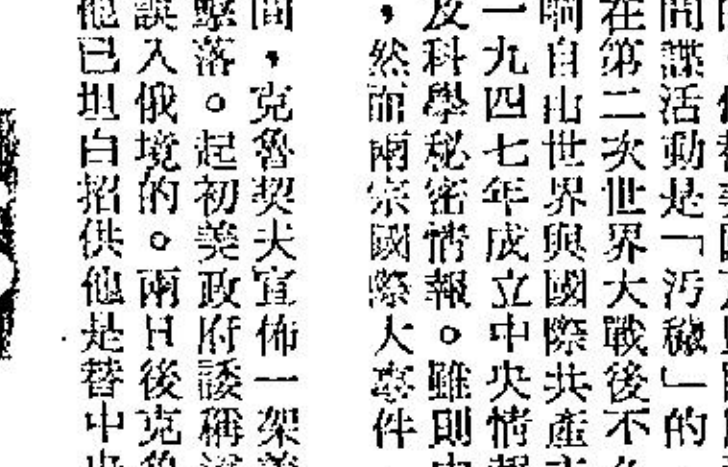 間諜活動是「汚穢」的
在第二次世界大戰後不
响自由世界與國際共產主
一九四七年成立中央情報
及科學秘密情報。雖則中
，然而兩宗國際大事件
間，克魯契夫宣佈一架美
擊落。起初美政府諉稱
誤入俄境的。兩日後克魯
他已坦白招供他是替中央